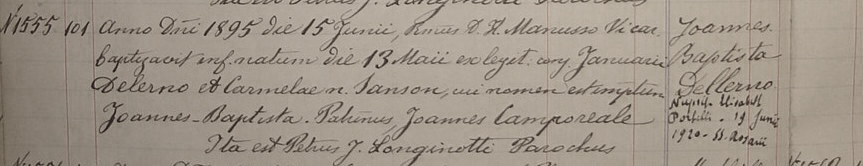 N1555 101 Anno Dñi 1895 die 15 Junii, Rmus D. H. Manusso Vicar.
baptizavit inf. natum die 13 Maii ex legit. conj. Januarii
Delerno et Carmelae n. Sanson, cui nomen est imptum
Joannes-Baptista. Patrinus Joannes Camporeale
Ita est Petrus J. Longinotti Parochus
Joannes
Baptista
Dellerno
Nupsit Elisabett
19 Junii
1920 - SS. Rosarii